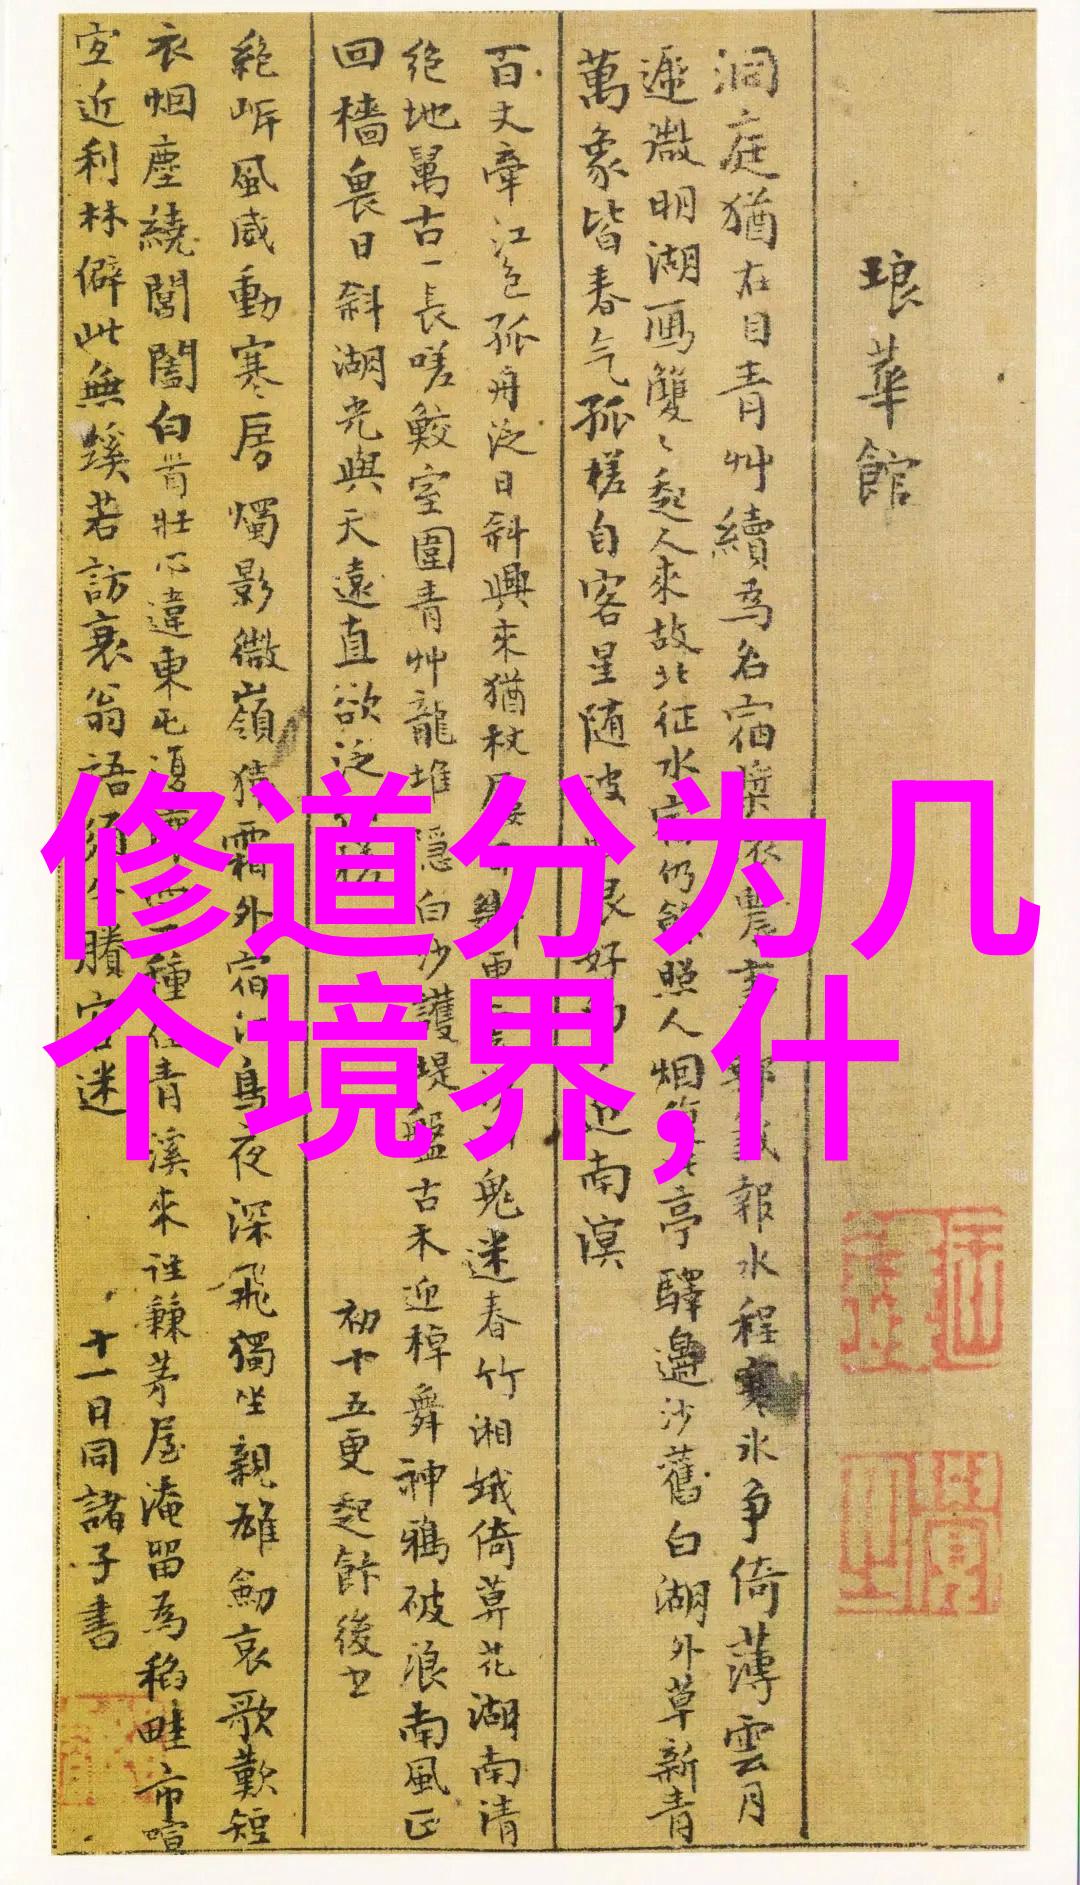 琅華館
洞庭猶在目青艸續為名宿槳
報水程寒水爭倚薄雲月
遞微明湖雁雙〻起人來故北征水宿仍
照人烟
亭驛邊沙舊白湖外草新青
萬象皆春气孤槎自客星随波
南溟
百丈牽江色孤舟泛日斜興來猶杖屨
更
鬼迷春竹湘娥倚暮花湖南清
絕地萬古一長嗟鮫室圍青艸龍堆隱白沙護堤盤古木迎棹舞神鴉破浪南風正
回檣畏日斜湖光與天遠直欲泛
初十五更起飯後書
絕岸風威動寒房燭影微嶺猿霜外宿江鳥夜深飛獨坐親雄劍哀歌歎短
衣烟塵繞閶闔白首壯心違東屯復
種住青溪來往兼茅屋淹留為稻畦市喧
宜近利林僻此無蹊若訪衰翁語須令賸客迷
十一日同諸子書
修道分为几
个境界,什